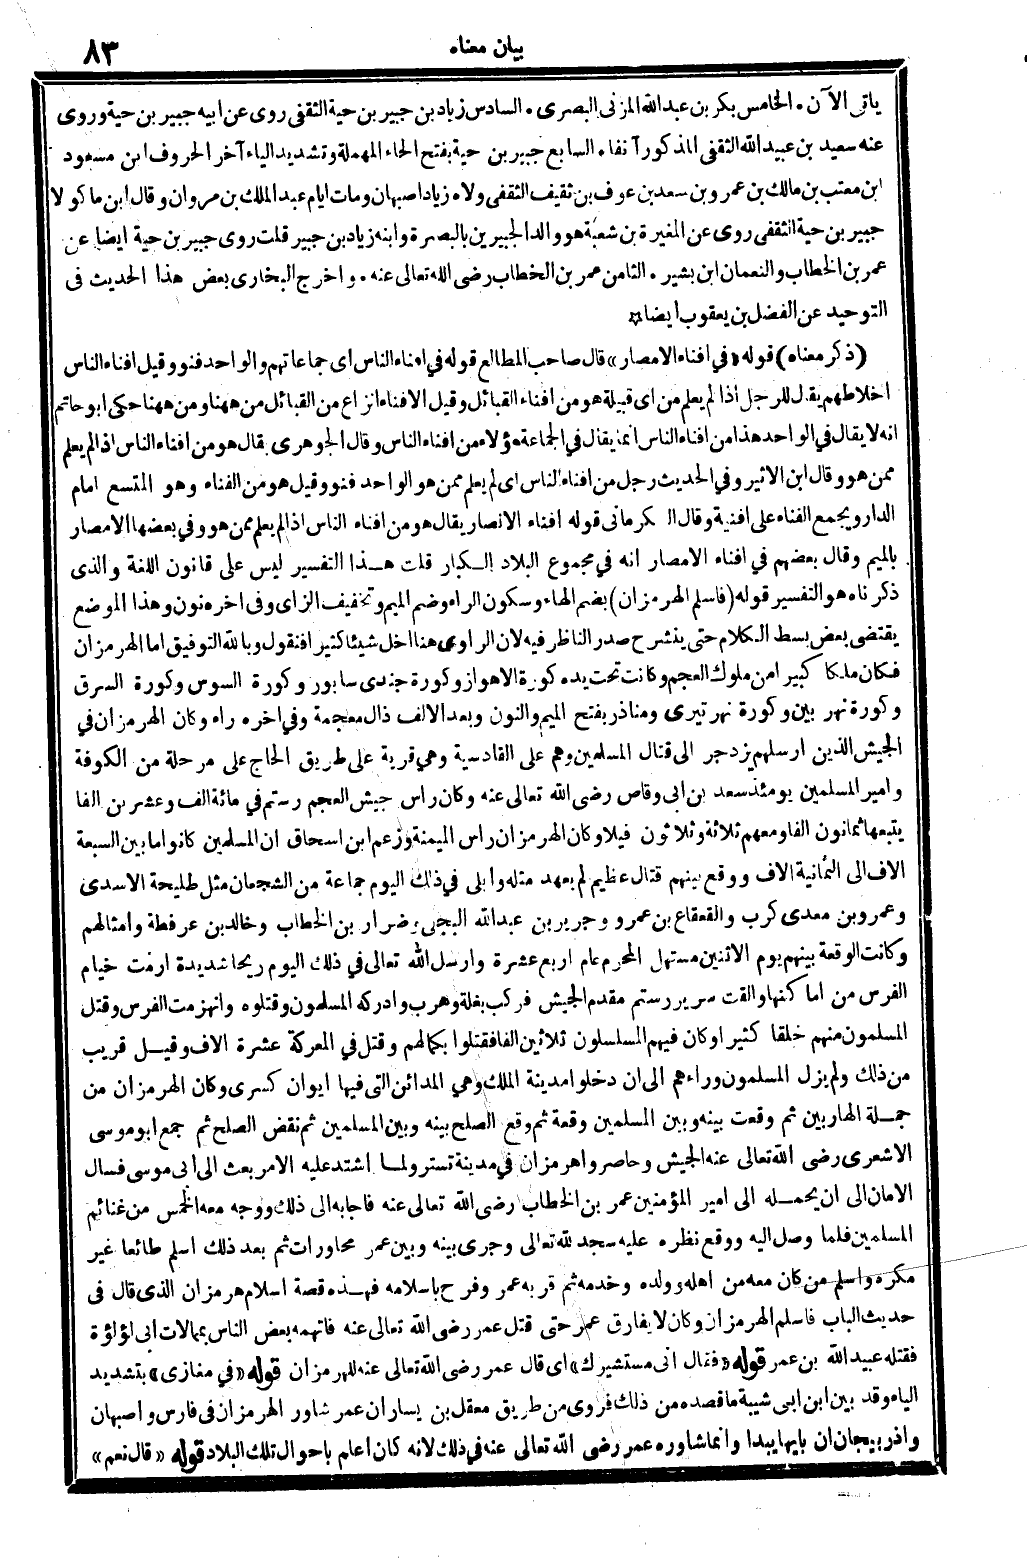 بيان معناه
٨٣
ياتى الآن . الخامس بكر بن عبدالله المزنى البصرى . السادس زياد بن جبير بن حية الثقفى روى عن ابيه جبير بن حية وروى
عنه سعيد بن عبيد الله الثقفى المذكور آنفا . السابع جبير بن حية بفتح الحاء المهملة وتشديد الياء آخر الحروف ابن مسعود
ابن معتب بن مالك بن عمرو بن سعد بن عوف بن ثقيف الثقفى ولاه زياد اصبهان ومات ايام عبد الملك بن مروان وقال ابن ماكولا
جبير بن حية الثقفى روى عن المغيرة بن شعبة هو والد الجبيرين بالبصرة وابنه زياد بن جبير قلت روى جبير بن حية ايضا عن
عمر بن الخطاب والنعمان ابن بشير . الثامن عمر بن الخطاب رضى الله تعالى عنه . واخرج البخارى بعض هذا الحديث فى
التوحيد عن الفضل بن يعقوب ايضا
(ذكر معناه) قوله «في افناء الامصار» قال صاحب المطالع قوله في افناء الناس اى جماعاتهم والواحد فنو وقيل افناء الناس
اخلاطهم يقال للرجل اذا لم يعلم من اى قبيلة هو من افناء القبائل وقيل الافناء انزاع من القبائل من ههنا ومن ههنا حكى ابو حاتم
انه لا يقال في الواحد هذا من افناء الناس انما يقال في الجماعة هؤلاء من افناء الناس وقال الجوهرى يقال هو من افناء الناس اذا لم يعلم
ممن هو وقال ابن الاثير وفي الحديث رجل من افناء الناس اى لم يعلم ممن هو الواحد فنو وقيل هو من الفناء وهو المتسع امام
الدار ويجمع الفناء على افنية وقال الكرمانى قوله افناء الانصار يقال هو من افناء الناس اذا لم يعلم ممن هو وفي بعضها الامصار
بالميم وقال بعضهم في افناء الامصار انه في مجموع البلاد الكبار قلت هذا التفسير ليس على قانون اللغة والذى
ذكرناه هو التفسير قوله (فاسلم الهرمزان) بضم الهاء وسكون الراء وضم الميم وتخفيف الزاى وفى اخره نون وهذا الموضع
يقتضى بعض بسط الكلام حتى ينشرح صدر الناظر فيه لان الراوى هنا اخل شيئا كثيرا فنقول وبالله التوفيق اما الهرمزان
فكان ملكا كبيرا من ملوك العجم وكانت تحت يده كورة الاهواز وكورة جندى سابور وكورة السوس وكورة السرق
وكورة نهر بين وكورة نهر تيرى ومناذر بفتح الميم والنون وبعد الالف ذال معجمة وفي اخره راء وكان الهرمزان في
الجيش الذين ارسلهم يزدجر الى قتال المسلمين وهم على القادسية وهي قرية على طريق الحاج على مرحلة من الكوفة
وامير المسلمين يومئذ سعد بن ابى وقاص رضى الله تعالى عنه وكان راس جيش العجم رستم في مائة الف وعشرين الفا
يتبعها ثمانون الفا ومعهم ثلاثة وثلاثون فيلا وكان الهرمزان راس الميمنة وزعم ابن اسحاق ان المسلمين كانوا ما بين السبعة
الاف الى الثمانية الاف ووقع بينهم قتال عظيم لم يعهد مثله وابلى في ذلك اليوم جماعة من الشجعان مثل طليحة الاسدى
وعمرو بن معدى كرب والقعقاع بن عمرو وجرير بن عبدالله البجلى وضرار بن الخطاب وخالد بن عرفطة وامثالهم
وكانت الوقعة بينهم يوم الاثنين مستهل المحرم عام اربع عشرة وارسل الله تعالى في ذلك اليوم ريحا شديدة ارمت خيام
الفرس من اماكنها والقت سرير رستم مقدم الجيش فركب بغلة وهرب وادركه المسلمون وقتلوه وانهزمت الفرس وقتل
المسلمون منهم خلقا كثيرا وكان فيهم المسلسلون ثلاثين الفا فقتلوا بكمالهم وقتل في المعركة عشرة الاف وقيل قريب
من ذلك ولم يزل المسلمون وراءهم الى ان دخلوا مدينة الملك وهي المدائن التى فيها ايوان كسرى وكان الهرمزان من
جملة الهاربين ثم وقعت بينه وبين المسلمين وقعة ثم وقع الصلح بينه وبين المسلمين ثم نقض الصلح ثم جمع ابو موسى
الاشعرى رضى الله تعالى عنه الجيش وحاصروا هرمزان في مدينة تستر ولما اشتد عليه الامر بعث الى ابى موسى فسال
الامان الى ان يحمله الى امير المؤمنين عمر بن الخطاب رضى الله تعالى عنه فاجابه الى ذلك ووجه معه الخمس من غنائم
المسلمين فلما وصل اليه ووقع نظره عليه سجد لله تعالى وجرى بينه وبين عمر محاورات ثم بعد ذلك اسلم طائعا غير
مكره واسلم من كان معه من اهله وولده وخدمه ثم قربه عمر وفرح باسلامه فهذه قصة اسلام هرمزان الذى قال فى
حديث الباب فاسلم الهرمزان وكان لا يفارق عمر حتى قتل عمر رضى الله تعالى عنه فاتهمه بعض الناس بمالات ابى لؤلؤة
فقتله عبيد الله بن عمر قوله «فقال انى مستشيرك» اى قال عمر رضى الله تعالى عنه للهرمزان قوله «في مغازى» بتشديد
الياء وقد بين ابن ابى شيبة ما قصده من ذلك فروى من طريق معقل بن يسار ان عمر شاور الهرمزان فى فارس واصبهان
واذربيجان ان بايها يبدا وانما شاوره عمر رضى الله تعالى عنه في ذلك لانه كان اعلم باحوال تلك البلاد قوله «قال نعم»